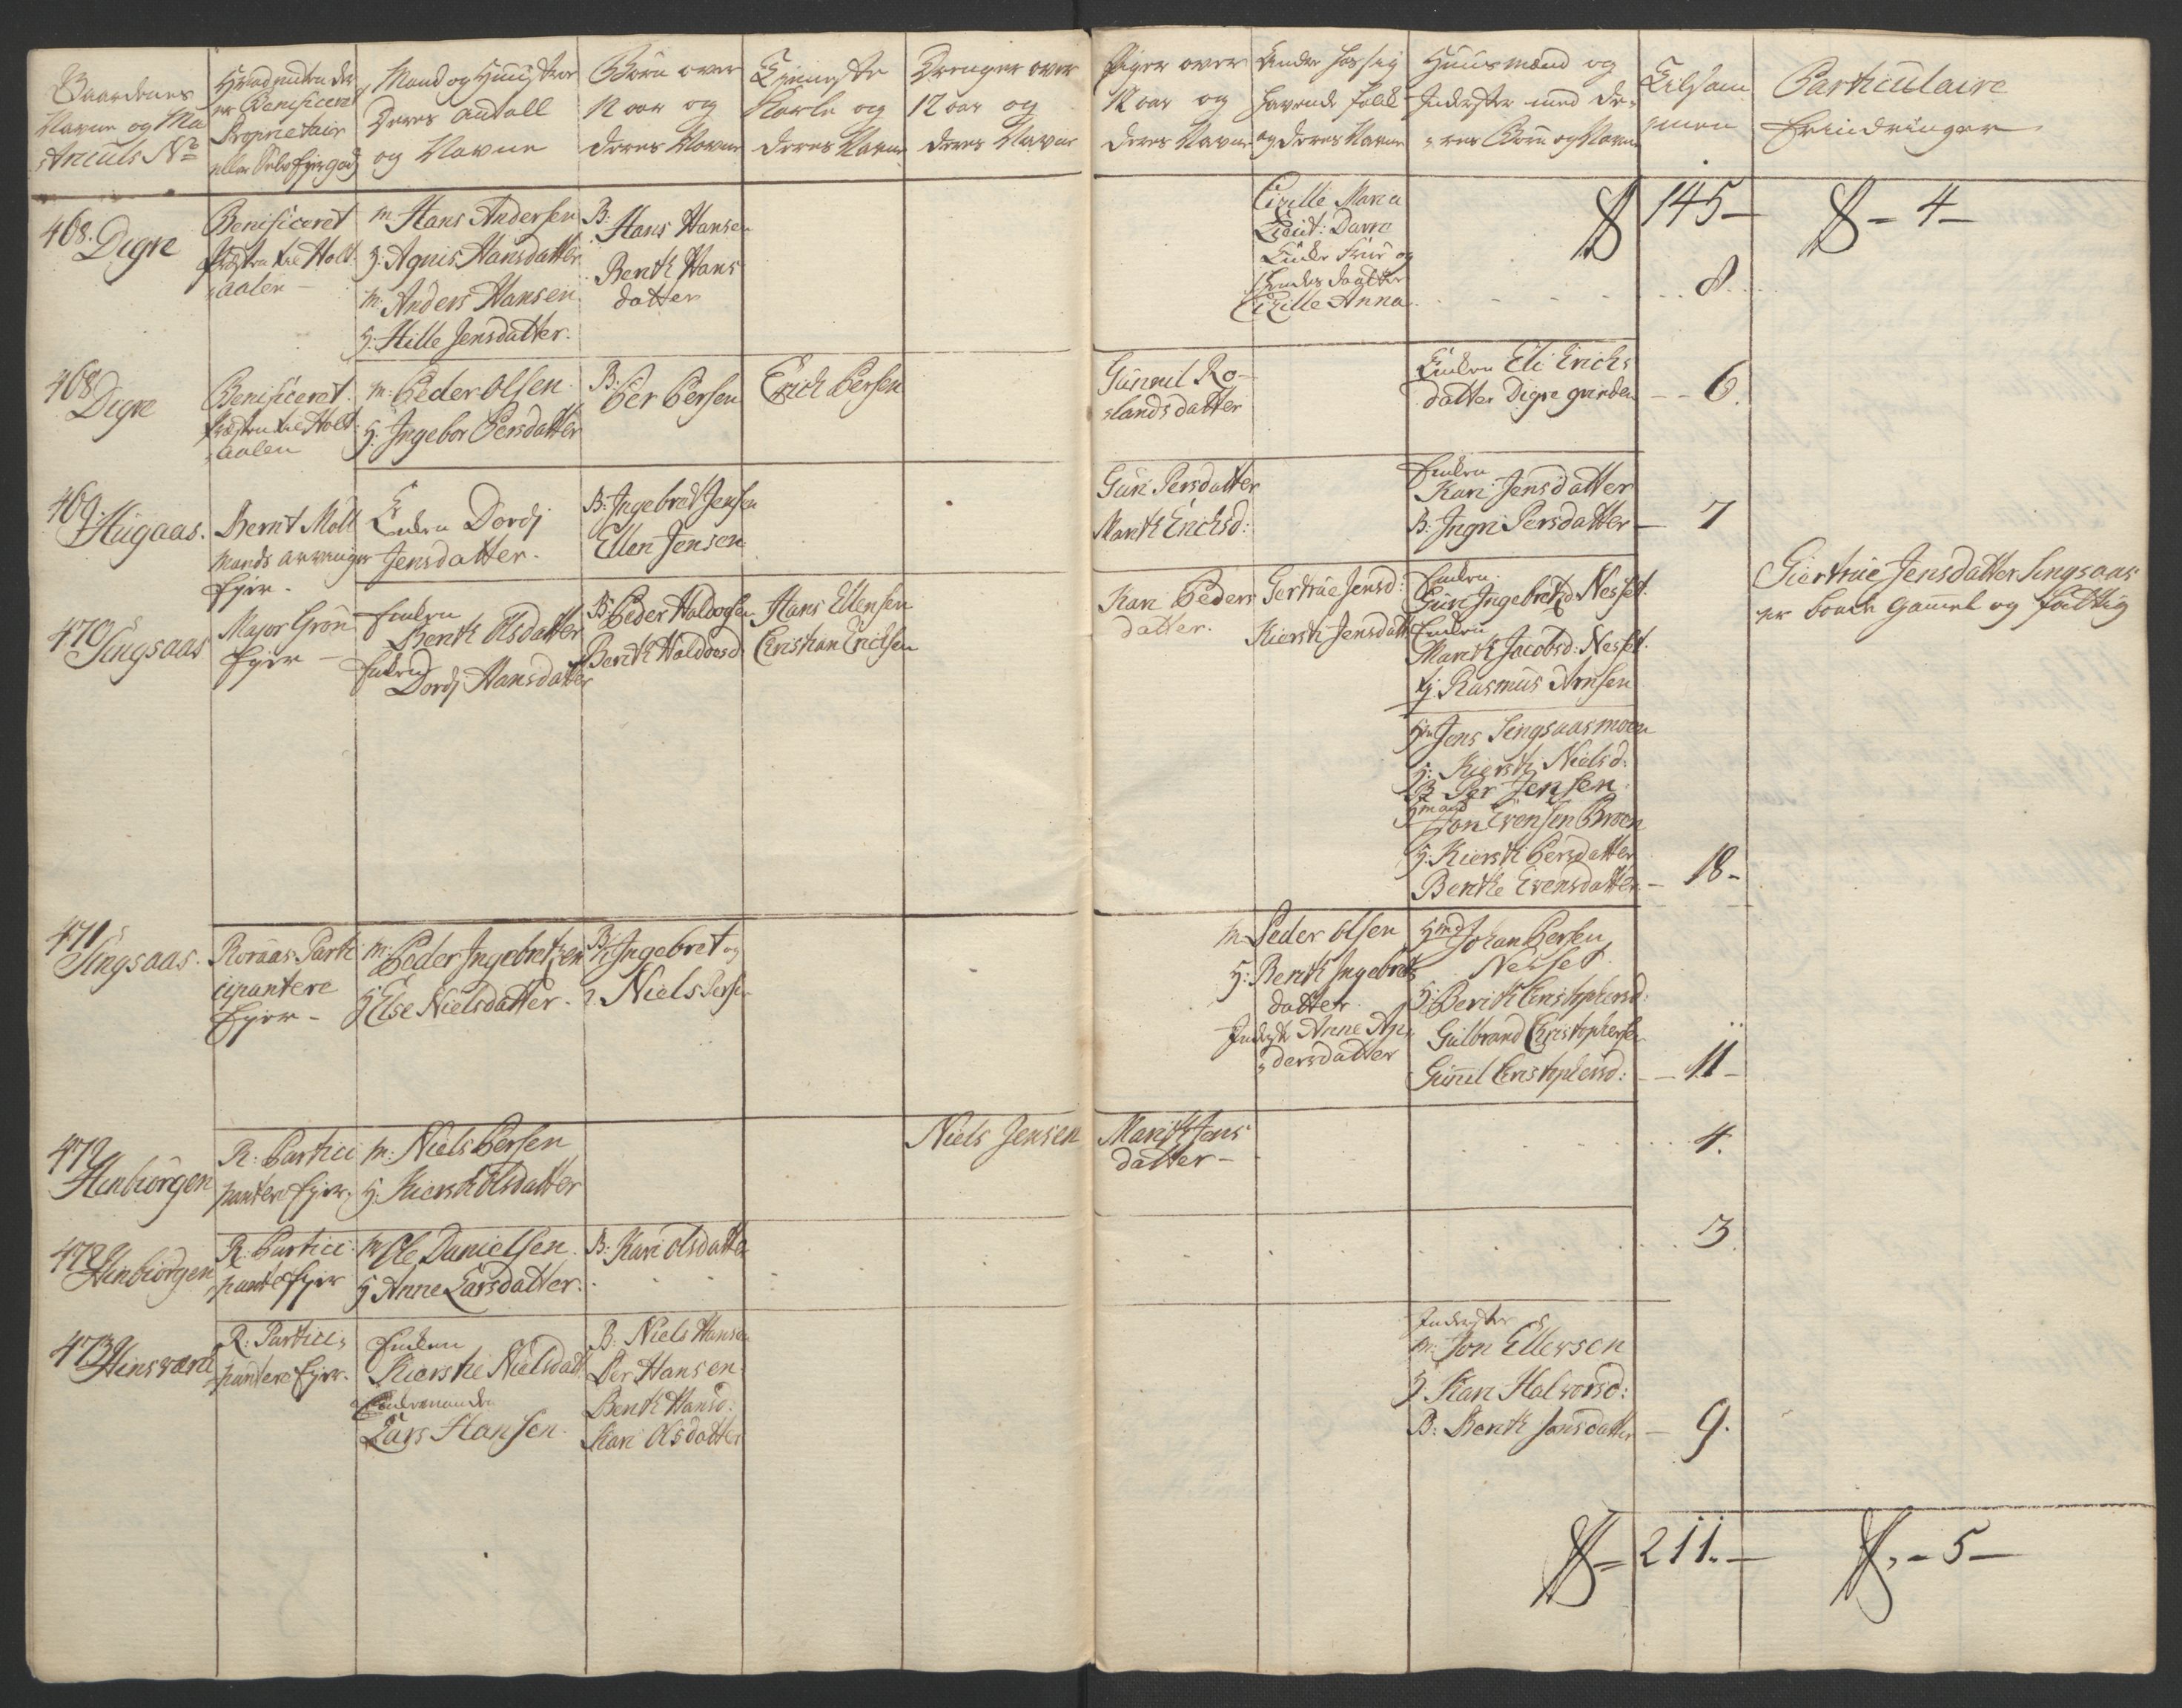 Gaardenes
Navne og Ma
triculs No
Hvad enten de
er Beneficeret
Proprietair
eller Selv Eyergods
Mand og Hustroe
Deres antall
og Navne
Børn over
12 aar og
deres Navne
Tienneste
Karle og
deres Navne
Drenger over
12 aar og
deres Navne
Piger over
12 aar og
deres Navne
Under sig
havende folk
og deres Navne
Huusmænd og
Inderster med de-
res Børn og Navne
Tilsam
men
Particulaire
Erindringer
145 –
4 –
468. Digre
Benificeret
Præsten til Holt
aalen –
M. Hans Andersen
H: Agnis Hansdatter
M: Anders Hansen
H: Hille Jensdatter.
B: Hans Hansen
Berith Hans
datter
Cizille Maria
Lieut: Darre
Enke Frue og
hendes daatter
Cizille Anna
8.
468 Digre
Benificeret
Præsten til Holt
aalen
M: Peder Olsen
H: Ingebor Persdatter
B: Per Persen
Erich Persen
Gunnil Ro-
landsdatter
Enken Eli Erichs
datter Digre grinden
6.
469. Hugaas.
Bernt Molt
mands arvinger
Eyer.
Enken Dordj
Jensdatter.
B: Ingebret Jensen
Ellen Jensen
Guri Persdatter
Marith Erichsd:
Enken
Kari Jensdatter
B: Ingri Persdatter
7
470 Singsaas
Major Grøn
Eyer –
Enken
Berith Olsdatter
Enken
Dordj Hansdatter
B: Peder Haldorsen
Berith Haldorsd
Hans Ellensen
Christian Erichsen
Kari Peders
datter.
Gertrue Jensd:
Kiersti Jensdatt
Enken
Guri Ingebretzd Nesset.
Enken
Marith Jacobsd: Nesset.
Rasmus Arnsen
Hm Jens Singsaasmoen
H: Kiersti Nielsd:
B Per Jensen.
Hmand
Jon Evensen Broen
H: Kiersti Persdatter
Berithe Evensdatter
18 –
Giertrue Jensdatter Singsaas
er baade gammel og fattig
471 Singsaas.
Roraas Parti
cipantere
Eyer –
M: Peder Ingebretzen
H Else Nielsdatter.
B: Ingebret og
Niels Persen
M Peder Olsen
H: Berith Ingebrets
datter
Inderste Anne An
dersdatter
Hmd Johan Persen
Nesset.
H: Berith Christophersd:
Gulbrand Christophersen
Gunnil Christophersd:
11 –
472 Hinbiørgen
R: Partici
pantere Eyer.
M: Niels Persen
H. Kiersti Olsdatter
Niels Jensen
Marith Jens
datter –
4.
472 Hinbiørgen
R: Partici
pante Eyer
M Ole Danielsen
H Anne Larsdatter.
B: Kari Olsdatter
3.
473 Hinsværk
R: Partici
pantere Eyer.
Enken
Kierstie Nielsdatt
Enkemanden
Lars Hansen.
B: Niels Hansen
Per Hansen
Berith Hansd:
Kari Olsdatter
Inderster
M: Jon Ellersen
H Kari Halvorsd:
B: Berith Jonsdatter
9.
211. –
– 5 –